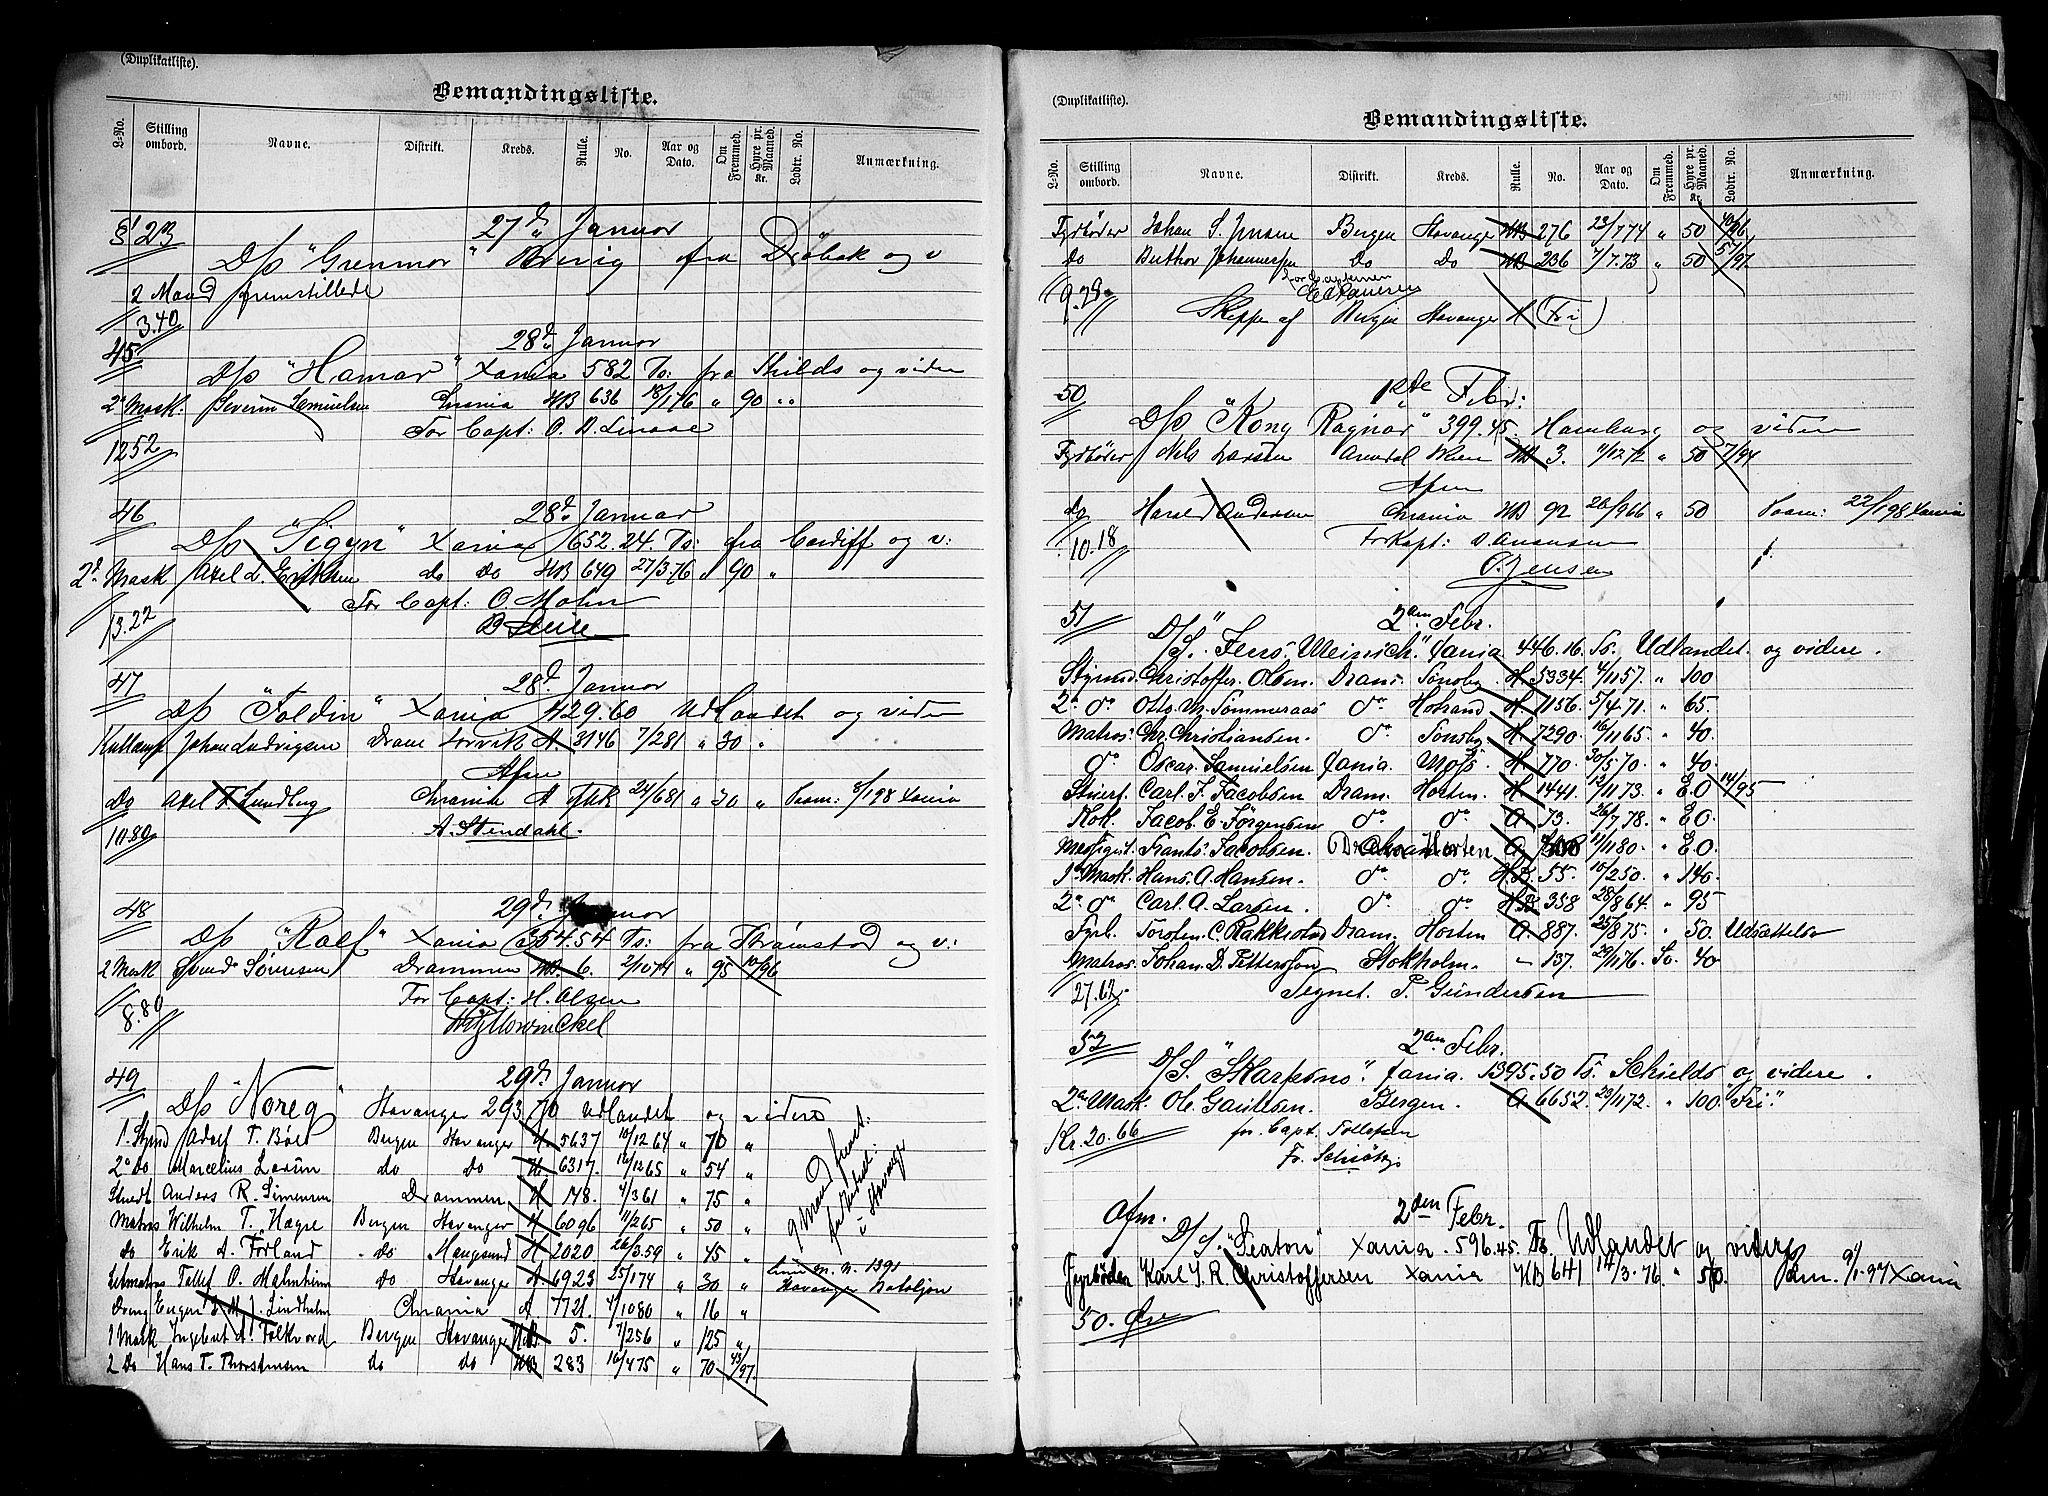 (Duplikatliste).
Bemandingsliste.
L-No. Stilling ombord. Navne. Distrikt. Kreds. Rulle. No. Aar og Dato. Om Fremmed. Hyre pr. Maaned. Kr. Lodtr. No. Anmærkning.
§1 23 27d Januar
D/S "Grenmar" Brevig fra Dröbak og v
2 Mand fremstillede
3.40
45 28d. Januar
D/S "Hamar" Xania 582 Ts: fra Shilds og videre
2d Mask. Severin Samuelsen Xrania HB 636 18/1 76 " 90 "
For Capt:
1252
46 28d. Januar
D/S "Sigyn" Xania 1652.24. Ts: fra Cardiff og v:
2d. Mask Axel L. Eriksen do do HB 649 27/3.76 " 90 "
For Capt: O. Mohn
13.22
47 28d. Januar
D/S "Foldin" Xania 429.60 Udlandet og videre
Kullemp Johan Ludvigsen Dram Larvik A 3146 7/2 81 " 30 "
Afm
Do Axel F. Lundberg Chrania A 24/6 81 " 30 "
10.80 A. Stendahl.
48 29d. Januar
D/S "Rolf" Xania 654.54 Ts: fra Strömstad og v:
2 Mask Svend Sörensen Drammen HB. 6. 2/10 74 " 95 10/96
For Capt: H. Olsen
8.80
49 29d. Januar
D/S "Noreg" Stavanger 293.70 Udlandet og videre
1. Stymd Adolf T. Böe Bergen Stavanger H 5637 10/12 64 " 70 "
2d Do Marcelius Larsen do do H 6317. 16/12 65 " 54 "
Stuedt Anders R. Simensen Drammen H 148. 4/3 61 " 75 "
Matros Wilhelm T. Hagre Bergen Stavanger H 6096 11/2 65 " 50 "
do Erik A. Förland do Haugesund H 2020 26/3.59 " 45 "
Letmatros Tollef O. Malmheim do Stavanger A 6923 25/1 74 " 30 "
Dreng Eugen Lindholm Chrania A 7721. 4/10 80 " 16 "
1 Mask Ingebret A. Folkvord Bergen Stavanger HB 5. 7/2 56 " 125 "
2 Do Hans T. Thorstensen do do HB 283 16/4 75 " 70 43/97.
9 Mand fremst:
i Stavanger
(Duplikatliste).
Bemandingsliste.
L-No. Stilling ombord. Navne. Distrikt. Kreds. Rulle. No. Aar og Dato. Om Fremmed. Hyre pr. Maaned. Kr Lodtr. No. Anmærkning.
Fyrböder Johan S. Jensen Bergen Stavanger HB 276 23/7 74 " 50 40/96
do Berthor Johannessen Do Do HB 236 7/7.73 " 50 57/97.
For Captainen
Skippe af Bergen Stavanger H (Fri)
50 1ste Febr:
D/S "Kong Ragnar" 399.45. Hamburg og videre
Fyrböder Nils Larsen Arendal HB 3. 11/12 72 " 50 7/94
Afm
do Harald Andersen Chrania HB 92 26/9 66 " 50 22/1 98 Xania
10.18 For Kapt:
O. Jensen
51 2den Febr.
D/S. "Jens Meinich." Xania 446.16. Ts. Udlandet og videre.
Styrmd. Christoffer Olsen. Dram. Tönsbg H. 5334. 4/11 57. " 100
2d do Otto M. Sommeraas do Holand H. 1156. 5/4.71. " 65.
Matros. Chr. Christiansen. do Tönsbg H. 7290. 16/11 65. " 40.
do Oscar. Samuelsen Xania. Moss H. 770. 30/5.70. " 40.
Stuert. Carl. F. Jacobsen Dram. Horten. H. 1441. 12/11 73. " E.O 14/95
Kok. Jacob. E. Jörgensen do do A. 73. 26/7.78. " E.O.
Frants. Jacobsen. Horten A 11/11 80. " E.O
1st Mask. Hans. A. Hansen. do do HB. 55. 10/2 50. " 146.
2d do Carl. A. Larsen. do do HB 358 28/8 64. " 95
Fyrb. Torsten. C. Rakkestad Dram. Horten A. 887. 25/8 75. " 50. Udsættelse
Matros. Johan. D. Pettersson Stokholm. - 137. 29/11 76. Sv. 40
27.62. Tegnet. P. Gundersen
52 2den Febr.
D/S. "Skarpsno." Xania. 1395.50 Ts. Schields og videre.
2den Mask. Ole. Gaulsen. Bergen. A. 6652. 23/11 72. " 100. "Fri"
Kr. 20.66 for. Capt. Tollefsen
Fr.
Afm. 2den Febr.
D/S. "Seaton" Xania. 596.45. Ts. Udlandet og videre
Fyrböder Karl J. R. Christoffersen Xania HB 641 14/3.76 " 50. 9/1.97 Xania
50. Öre